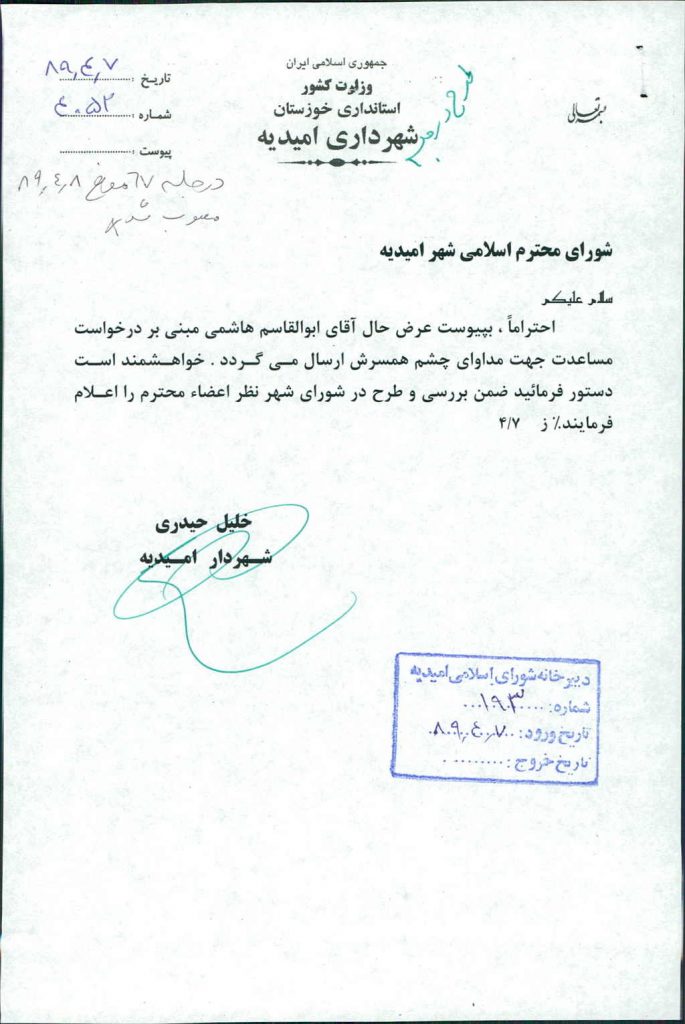 بسمه تعالی
جمهوری اسلامی ایران
وزارت کشور
استانداری خوزستان
شهرداری امیدیه
تاریخ : ۸۹,۴,۷
شماره : ۴۰۵۲
پیوست :
در جلسه ۶۷ مورخ ۸۹,۴,۸
مصوب شد
شورای محترم اسلامی شهر امیدیه
سلام علیکم
احتراماً ، بپیوست عرض حال آقای ابوالقاسم هاشمی مبنی بر درخواست
مساعدت جهت مداوای چشم همسرش ارسال می گردد . خواهشمند است
دستور فرمائید ضمن بررسی و طرح در شورای شهر نظر اعضاء محترم را اعلام
فرمایند٪ ز ۴/۷
خلیل حیدری
شهردار امیدیه
دبیرخانه شورای اسلامی امیدیه
شماره: ۱۹۳
تاریخ ورود: ۸۹,۴,۷
تاریخ خروج: